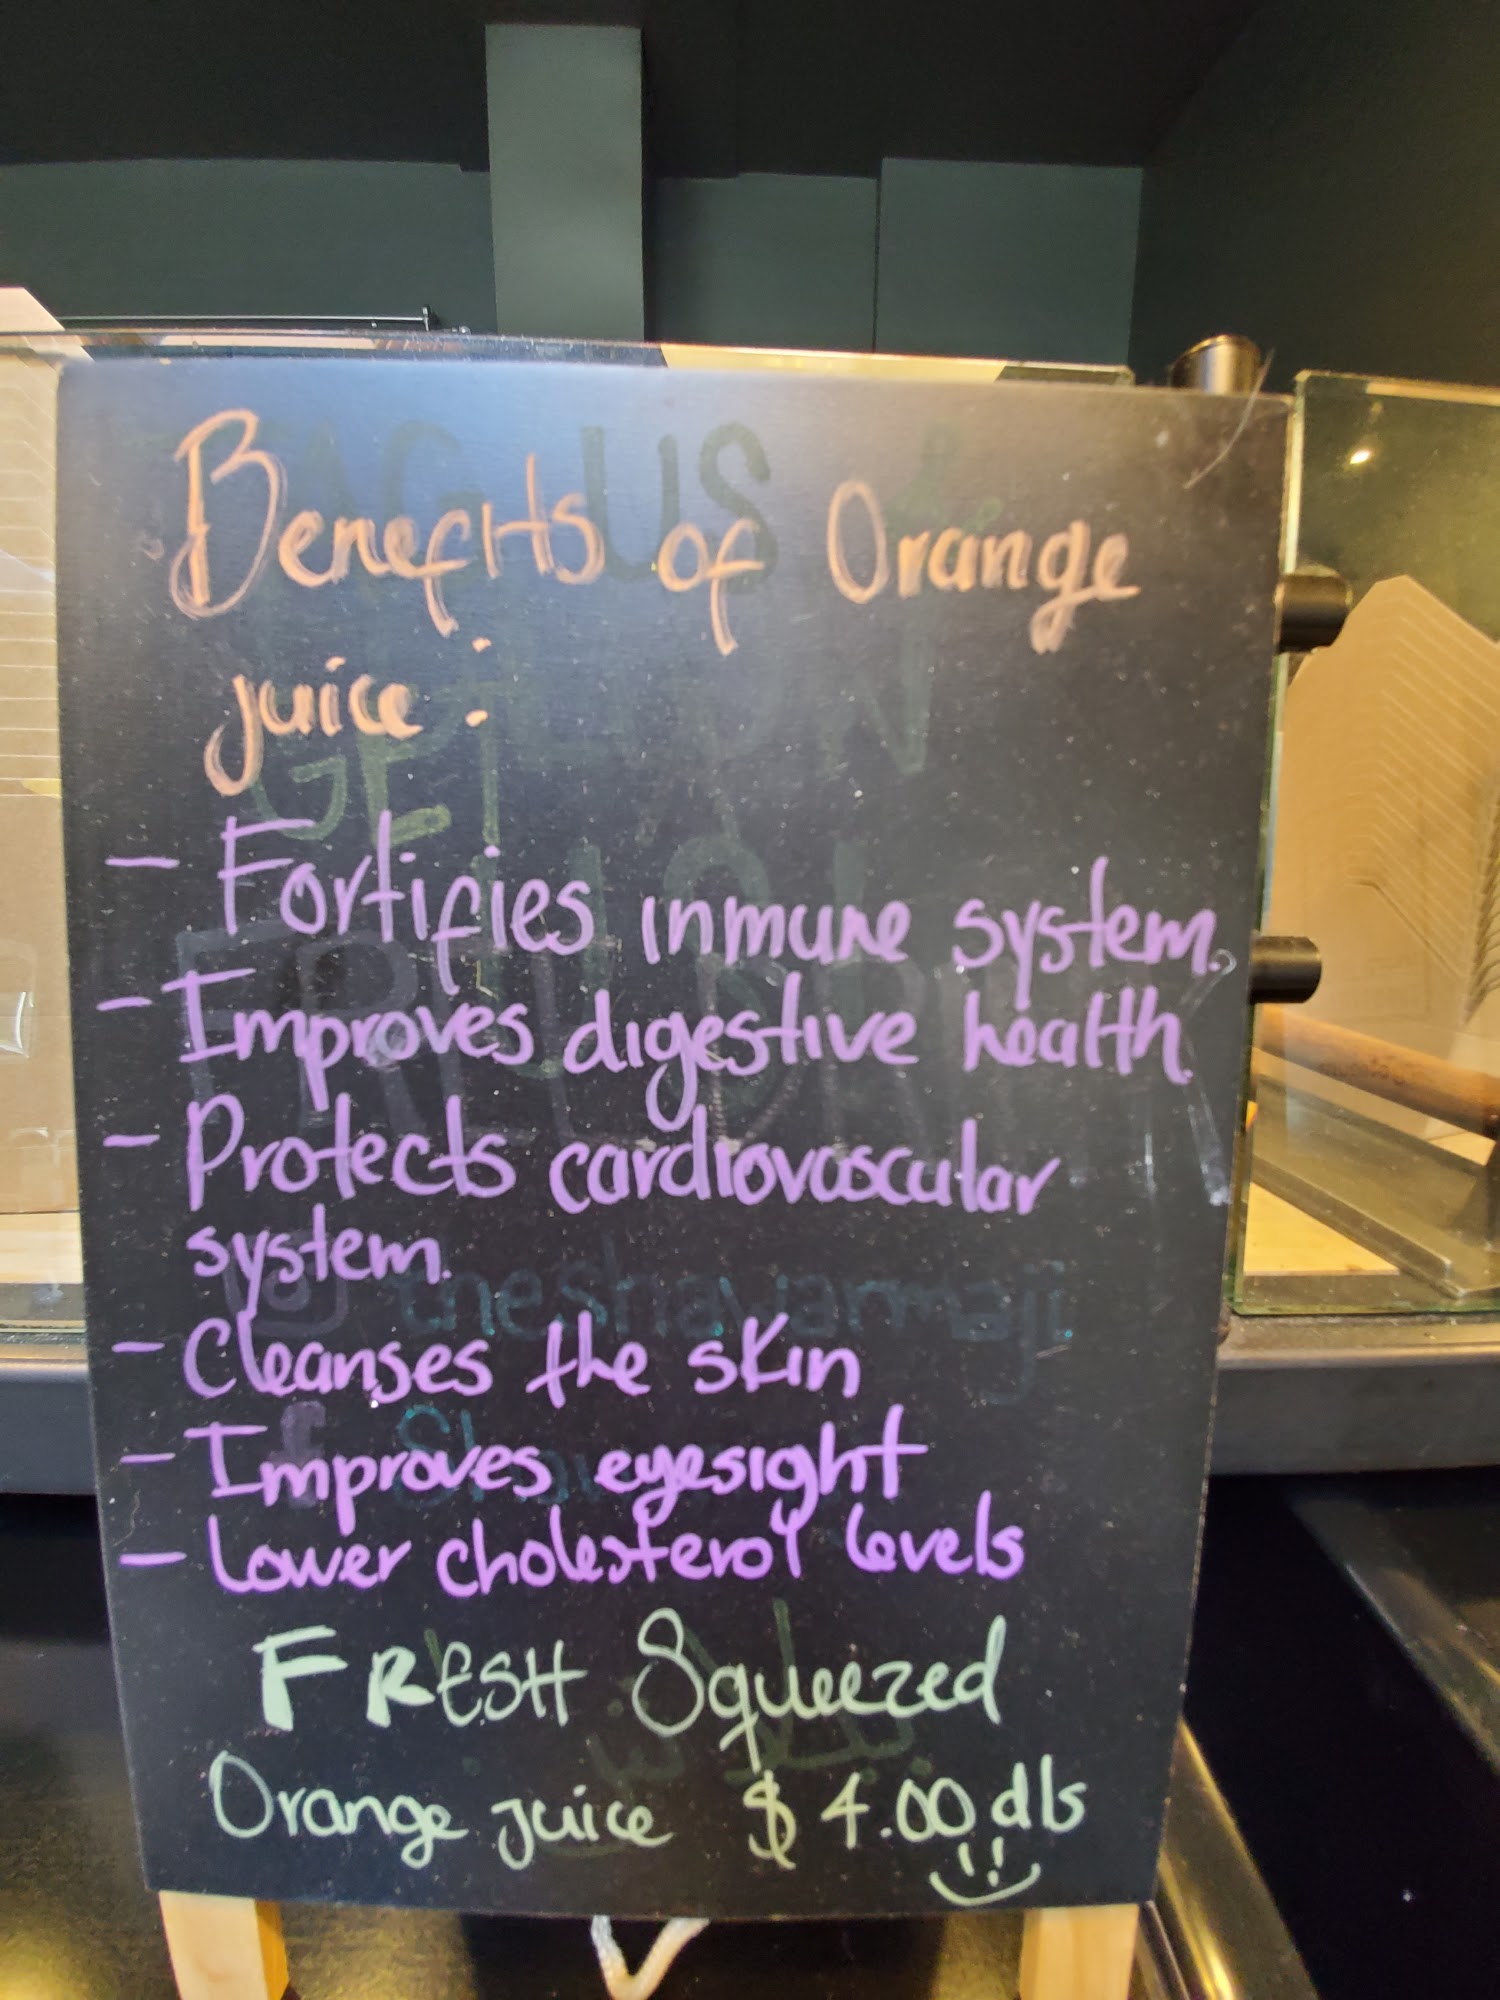 Benefits of Orange
juice:
- Fortifies inmune system.
- Improves digestive health.
- Protects cardiovascular
system.
- Cleanses the skin
- Improves eyesight
- Lower cholesterol levels
FRESH Squeezed
Orange juice $4.00 dls
TAG US
GET
theshawarmaji